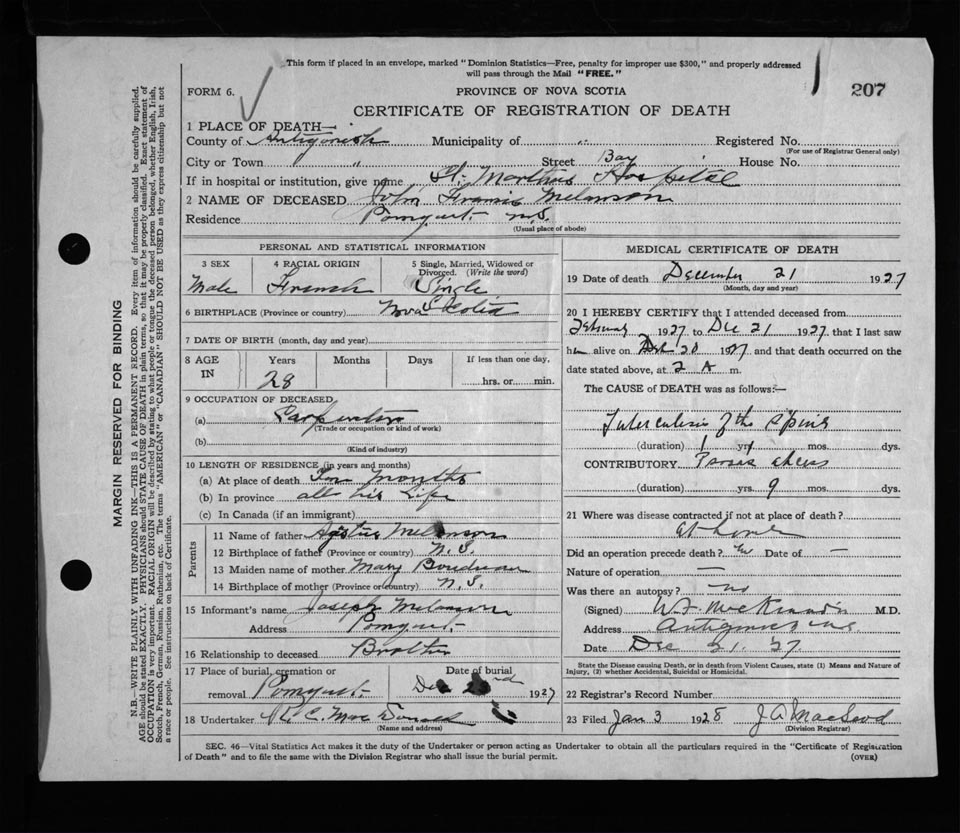 This form if placed in an envelope, marked "Dominion Statistics—Free, penalty for improper use $300," and properly addressed
will pass through the Mail "FREE."
FORM 6. PROVINCE OF NOVA SCOTIA 207
CERTIFICATE OF REGISTRATION OF DEATH
1 PLACE OF DEATH—
County of Antigonish Municipality of " Registered No.
(For use of Registrar General only)
City or Town " " Street Bay House No.
If in hospital or institution, give name St. Marthas Hospital
2 NAME OF DECEASED John Francis Melanson
Residence Pomquet N.S.
(Usual place of abode)
PERSONAL AND STATISTICAL INFORMATION
3 SEX 4 RACIAL ORIGIN 5 Single, Married, Widowed or
Divorced. (Write the word)
Male French Single
6 BIRTHPLACE (Province or country) Nova Scotia
7 DATE OF BIRTH (month, day and year)
8 AGE IN Years Months Days If less than one day.
28 hrs. or min.
9 OCCUPATION OF DECEASED
(a) Carpenter
(Trade or occupation or kind of work)
(b)
(Kind of industry)
10 LENGTH OF RESIDENCE (in years and months)
(a) At place of death months
(b) In province all his life
(c) In Canada (if an immigrant)
Parents
11 Name of father Melanson
12 Birthplace of father (Province or country) N.S.
13 Maiden name of mother Mary
14 Birthplace of mother (Province or country) N.S.
15 Informant's name Joseph Melanson
Address Pomquet
16 Relationship to deceased Brother
17 Place of burial, cremation or Date of burial
removal Pomquet Dec 1927
18 Undertaker R. C. MacDonald
(Name and address)
MEDICAL CERTIFICATE OF DEATH
19 Date of death December 21 1927
(Month, day and year)
20 I HEREBY CERTIFY that I attended deceased from
1927 to Dec 21 1927 that I last saw
him alive on Dec 20 1927 and that death occurred on the
date stated above, at 2 A m.
The CAUSE OF DEATH was as follows:—
Tuberculosis of the Spine
(duration) 1 yrs mos. dys.
CONTRIBUTORY Psoas abcess
(duration) yrs. 9 mos. dys.
21 Where was disease contracted if not at place of death?
at home
Did an operation precede death? no Date of —
Nature of operation —
Was there an autopsy? no
(Signed) M.D.
Address Antigonish N.S.
Date Dec 21. 27
State the Disease causing Death, or in death from Violent Causes, state (1) Means and Nature of
Injury, (2) whether Accidental, Suicidal or Homicidal.
22 Registrar's Record Number
23 Filed Jan 3 1928 J A MacLeod
(Division Registrar)
SEC. 46—Vital Statistics Act makes it the duty of the Undertaker or person acting as Undertaker to obtain all the particulars required in the "Certificate of Registration
of Death" and to file the same with the Division Registrar who shall issue the burial permit. (OVER)
MARGIN RESERVED FOR BINDING
N.B.—WRITE PLAINLY WITH UNFADING INK—THIS IS A PERMANENT RECORD. Every item of information should be carefully supplied.
AGE should be stated EXACTLY. PHYSICIANS should STATE CAUSE OF DEATH in plain terms, so that it may be properly classified. Exact statement of
OCCUPATION is very important. RACIAL ORIGIN will be described by stating to what people or tongue the deceased person belonged, whether English, Irish,
Scotch, French, German, Russian, Ruthenian, etc. The terms "AMERICAN" or "CANADIAN" SHOULD NOT BE USED as they express citizenship but not
a race or people. See instructions on back of Certificate.